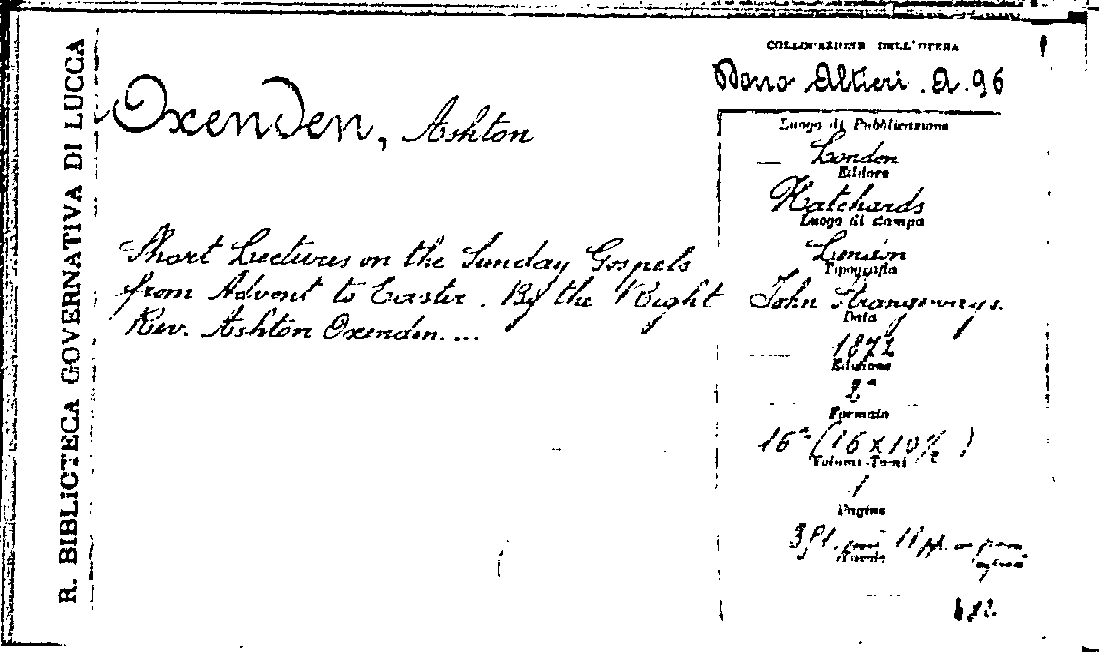 R. BIBLIOTECA GOVERNATIVA DI LUCCA
Oxenden, Ashton
Short Lectures on the Sunday Gospels
from Advent to Easter. By the Right
Rev. Ashton Oxenden....
COLLOCAZIONE DELL'OPERA
Dono Altieri. A. 96
Luogo di Pubblicazione
London
Editore
Hatchards
Luogo di stampa
London
Tipografia
John Strangeways.
Data
1872
Edizione
2ª
Formato
16° (16 x 10½)
Volumi-Tomi
1
Pagine